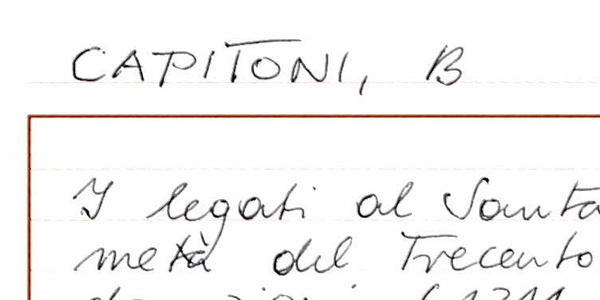 CAPITONI, B
I legati al Santa
metà del Trecento